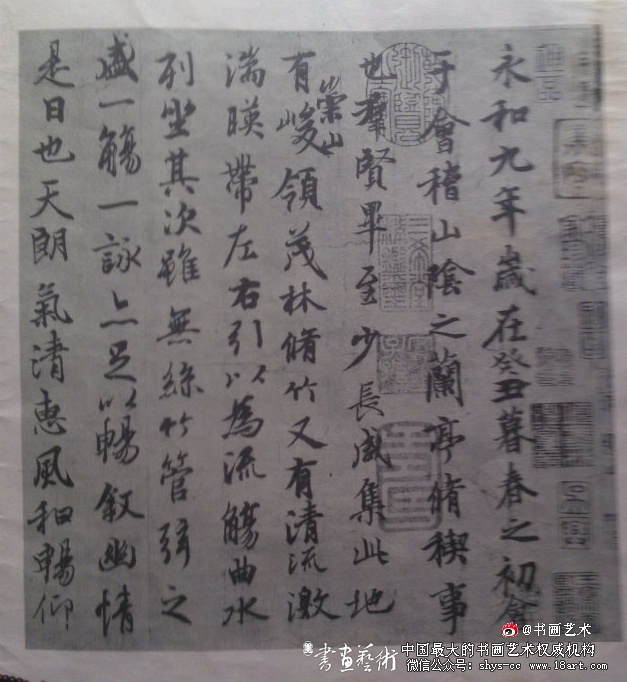 永和九年歲在癸丑暮春之初會
于會稽山陰之蘭亭脩稧事
也羣賢畢至少長咸集此地
有崇山峻領茂林脩竹又有清流激
湍暎帶左右引以為流觴曲水
列坐其次雖無絲竹管弦之
盛一觴一詠亦足以暢敘幽情
是日也天朗氣清惠風和暢仰
@书画艺术
書畫藝術
中国最大的书画艺术权威机构
微信公众号: shys-cc www.18art.com